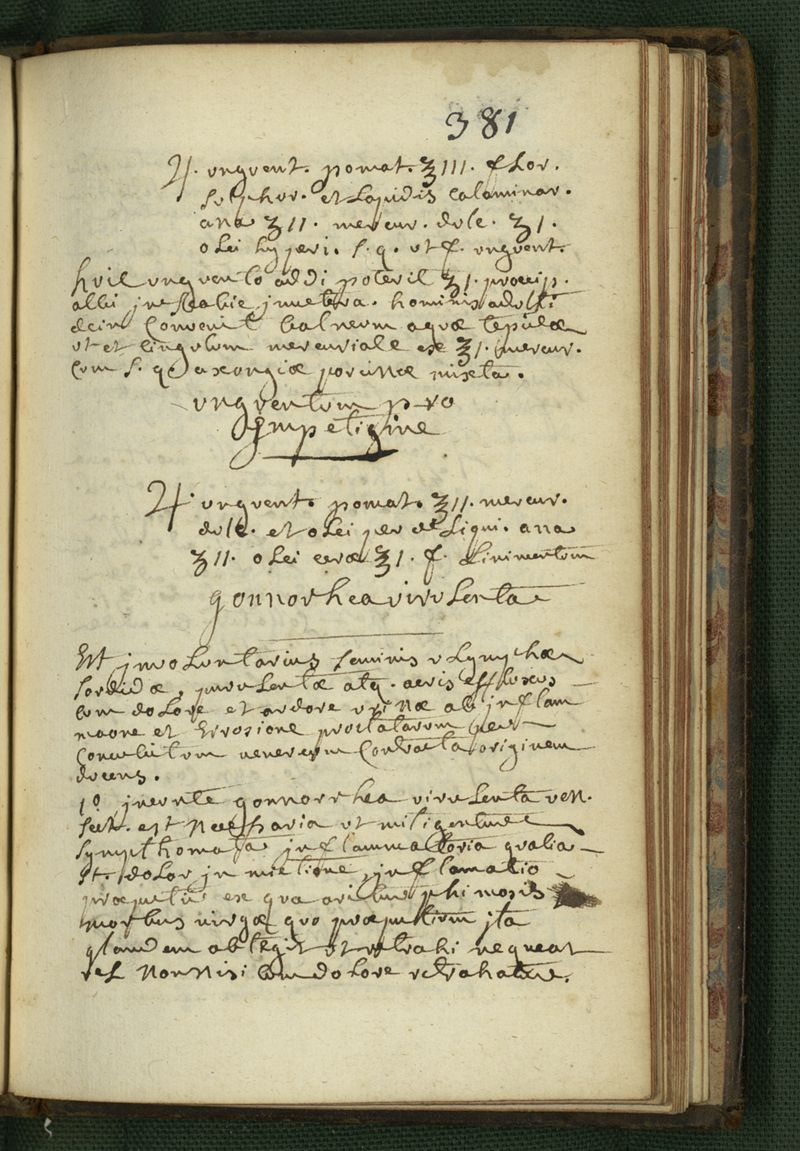 381
♃. ungvent. pomat. ℥III. flor.
sulphur. et Lapidis Calaminar.
ana ʒII. mercur. dulc. ʒI.
olei hyperi. s. q. ut f. ungvent.
huic ungvento addi poteril ʒI. præcip.
albi in scabie invetera. hominis adulti
dein Convenit balneum aquæ tepidæ
ut et cingulum mercuriale ex ʒI. mercur.
Cum s. q. axongiæ porcinæ mixta.
ungventum pro
Impetigine
♃. ungvent. pomat. ℥II. mercur.
dulc. et olei per deLiqui. ana
ʒII. olei ceræ ʒI. f. Linimentum
gonnorhea virulenta
Est involuntarius seminis v Lymphæ
sordidæ, purulentæ atq. acris effluxus
cum doLore et ardore urinæ ab inflam
maone et Errosione proctatarum per
Concubitum venereum Contracta originem
ducens.
1º. ineunte gonnorrhea viruLenta ven.
sect. est Necessaria ut mitigentur
sympthomata inflammattoria qualia
st. doLor in mictione, inflamatio
præputii ex qua oritur phimosis
morbus virgæ quo præputium ita
glandem abtegit ut retrahi nequeat
vel Non Nisi Cum doLore retrahatur.